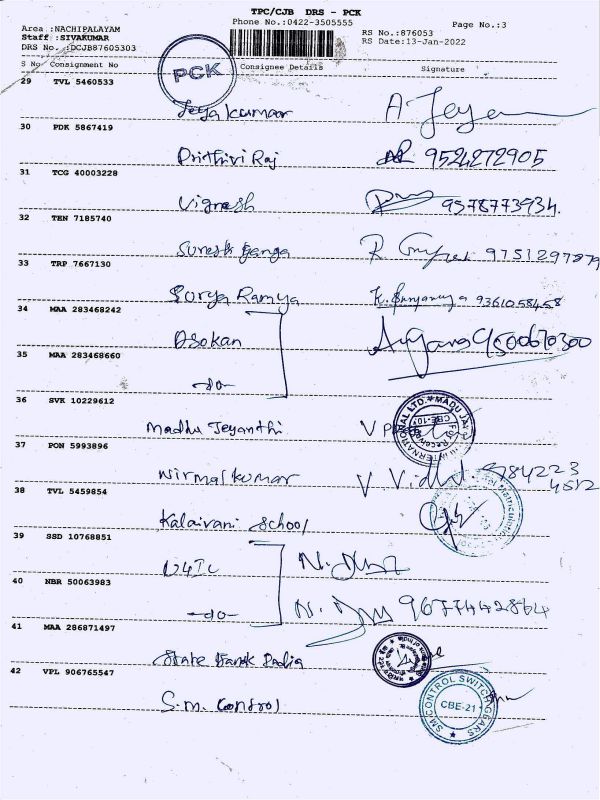 TPC/CJB DRS - PCK
Phone No.:0422-3505555
Page No.:3
Area :NACHIPALAYAM
Staff :SIVAKUMAR
DRS No. :DCJB87605303
RS No.:876053
RS Date:13-Jan-2022
S No Consignment No Consignee Details Signature
PCK
29 TVL 5460533
Jeyakumar A. Jeya
30 PDK 5867419
Prithivi Raj 9524272905
31 TCG 40003228
Vignesh 9578773934
32 TEN 7185740
Suresh Ganga R
33 TRP 7667130
Surya Ramya 9361058458
34 MAA 283468242
Asokan 9500670300
35 MAA 283468660
-do-
36 SVK 10229612
Madhu Jeyanthi V
37 PON 5993896
Nirmalkumar V
38 TVL 5459854
Kalaivani School
39 SSD 10768851
N.
40 NBR 50063983
-do- N. 9677442864
41 MAA 286871497
State Bank India
42 VPL 906765547
S.M. Control
SM CONTROL SWITCHGEARS
CBE-21